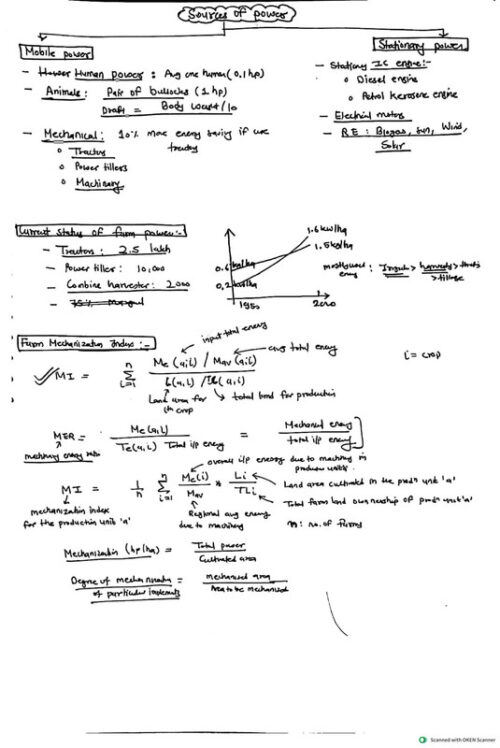 Sources of power
Mobile power
Stationary power
- Human power : Avg one human (0.1 hp)
- Animals : Pair of bullocks (1 hp)
Draft = Body weight/10
- Mechanical : 10% more energy saving if use
tractor
o Tractor
o Power tillers
o Machinery
- Stationary IC engine:-
o Diesel engine
o Petrol Kerosene engine
- Electrical motors
- R.E : Biogas, Wind,
Solar
Current status of farm power:-
- Tractors : 2.5 lakh
- Power tiller : 10,000
- Combine harvester : 2000
1.6 kw/ha
1.5 kg/ha
0.6 kg/ha
0.2 kw/ha
1950
2000
mostly used : Irrign > > 
energy > tillage
Farm Mechanization Index :-
input total energy
avg total energy
MI = n Σ i=1 Me (a,i) / Mav (a,i)
L(a,i) / TL (a,i)
i = crop
Land area for
ith crop
total land for production
MER = Me(a,i) / Te(a,i) Total i/p energy = Mechanical energy / total i/p energy
machinery energy ratio
overall i/p energy due to machinery in
production unit
MI = 1/n n Σ i=1 Me(i) / Mav * Li / TLi
Land area cultivated in the prodn unit 'a'
Total farm land ownership of prodn unit 'a'
mechanization index
for the production unit 'a'
Regional avg energy
due to machinery
n : no. of farms
Mechanization (hp/ha) = Total power / Cultivated area
Degree of mechanization = mechanized area / Area to be mechanized
of particular implements
Scanned with OKEN Scanner